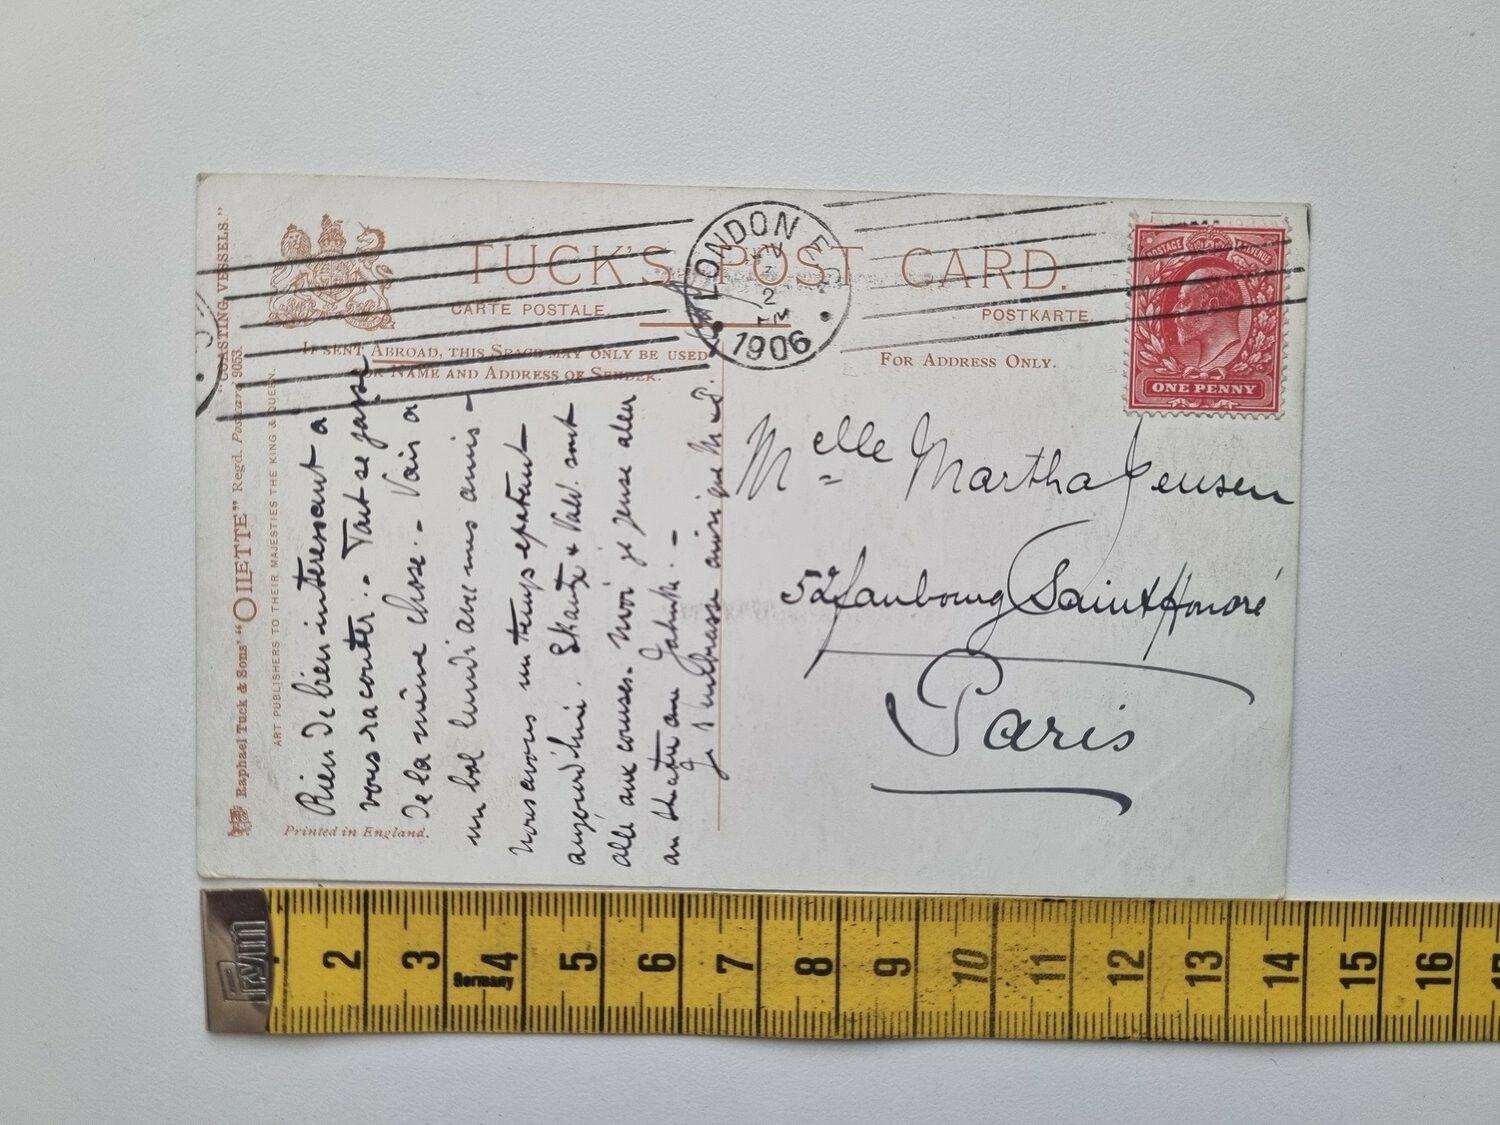 "COASTING VESSELS."
Raphael Tuck & Sons' "OILETTE" Regd. Postcard 9053.
ART PUBLISHERS TO THEIR MAJESTIES THE KING & QUEEN.
TUCK'S POST CARD.
CARTE POSTALE.
POSTKARTE.
IF SENT ABROAD, THIS SPACE MAY ONLY BE USED
FOR NAME AND ADDRESS OF SENDER.
FOR ADDRESS ONLY.
LONDON E.C.
2
PM
1906
POSTAGE REVENUE
ONE PENNY
Rien de bien interessant a
vous raconter.- Tout se passe
de la même chose.- Vais a
un bal lundi avec mes amis -
nous avons un temps epatant
aujourd'hui. & sont
allé aux courses. Moi je pense aller
au theatre au
Je t'embrasse ainsi que
Melle Martha Jensen
52 faubourg Saint Honoré
Paris
Printed in England.
Prym
Germany
2 3 4 5 6 7 8 9 10 11 12 13 14 15 16